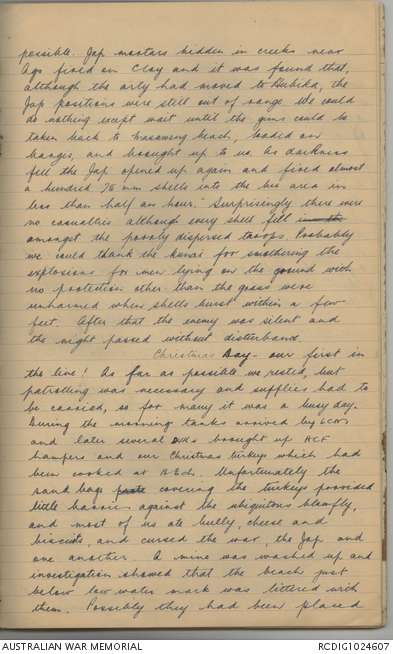 possible. Jap mortars hidden in creeks near
Ago fired on Clay and it was found that,
although the arty had moved to Hubika, the
Jap positions were still out of range. We could
do nothing except wait until the guns could be
taken back to beach, loaded on
barges, and brought up to us. As darkness
fell the Jap opened up again and fired almost
a hundred 75 mm shells into the bn area in
less than half an hour. Surprisingly there were
no casualties although every shell fell
amongst the poorly dispersed troops. Probably
we could thank the kunai for smothering the
explosions for men lying on the ground with
no protection other than the grass were
unharmed when shells burst within a few
feet. After that the enemy was silent and
the night passed without disturband.
Christmas Day - our first in
the line! As far as possible we rested, but
patrolling was necessary and supplies had to
be carried, so for many it was a busy day.
During the morning tanks arrived by LCMs
and later several brought up ACF
hampers and our Christmas turkeys which had
been cooked at B Ech. Unfortunately the
sand bags covering the turkeys provided
little barrier against the ubiquitous blowfly,
and most of us ate bully, cheese and
biscuits, and cursed the war, the Jap and
one another. A mine was washed up and
investigation showed that the beach just
below low water mark was littered with
them. Possibly they had been placed
AUSTRALIAN WAR MEMORIAL
RCDIG1024607